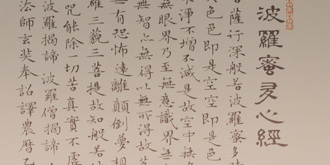 波羅蜜多心經
菩薩行深般若波羅蜜多
色色即是空空即是色
淨不增不減是故空中無
無眼界乃至無意識界無
無智亦無得以無所得故
無有恐怖遠離顛倒夢想
羅三藐三菩提故知般若
咒能除一切苦真實不虛
波羅揭諦波羅僧揭諦
法師玄奘奉詔譯農曆乙